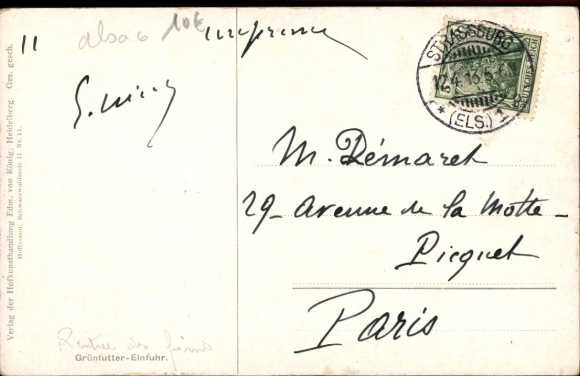 11
alsac
10€
imprimé
STRASSBURG
17.4.13.5-6
* (ELS.) 1
DEUTSCHES REICH
M. Démaret
29 - Avenue de la Motte -
Picquet
Paris
Rentrée des foins
Grünfutter-Einfuhr.
Verlag der Hofkunsthandlung Edm. von König, Heidelberg. Ges. gesch.
Hoffmann, Schwarzwaldserie II Nr. 11.